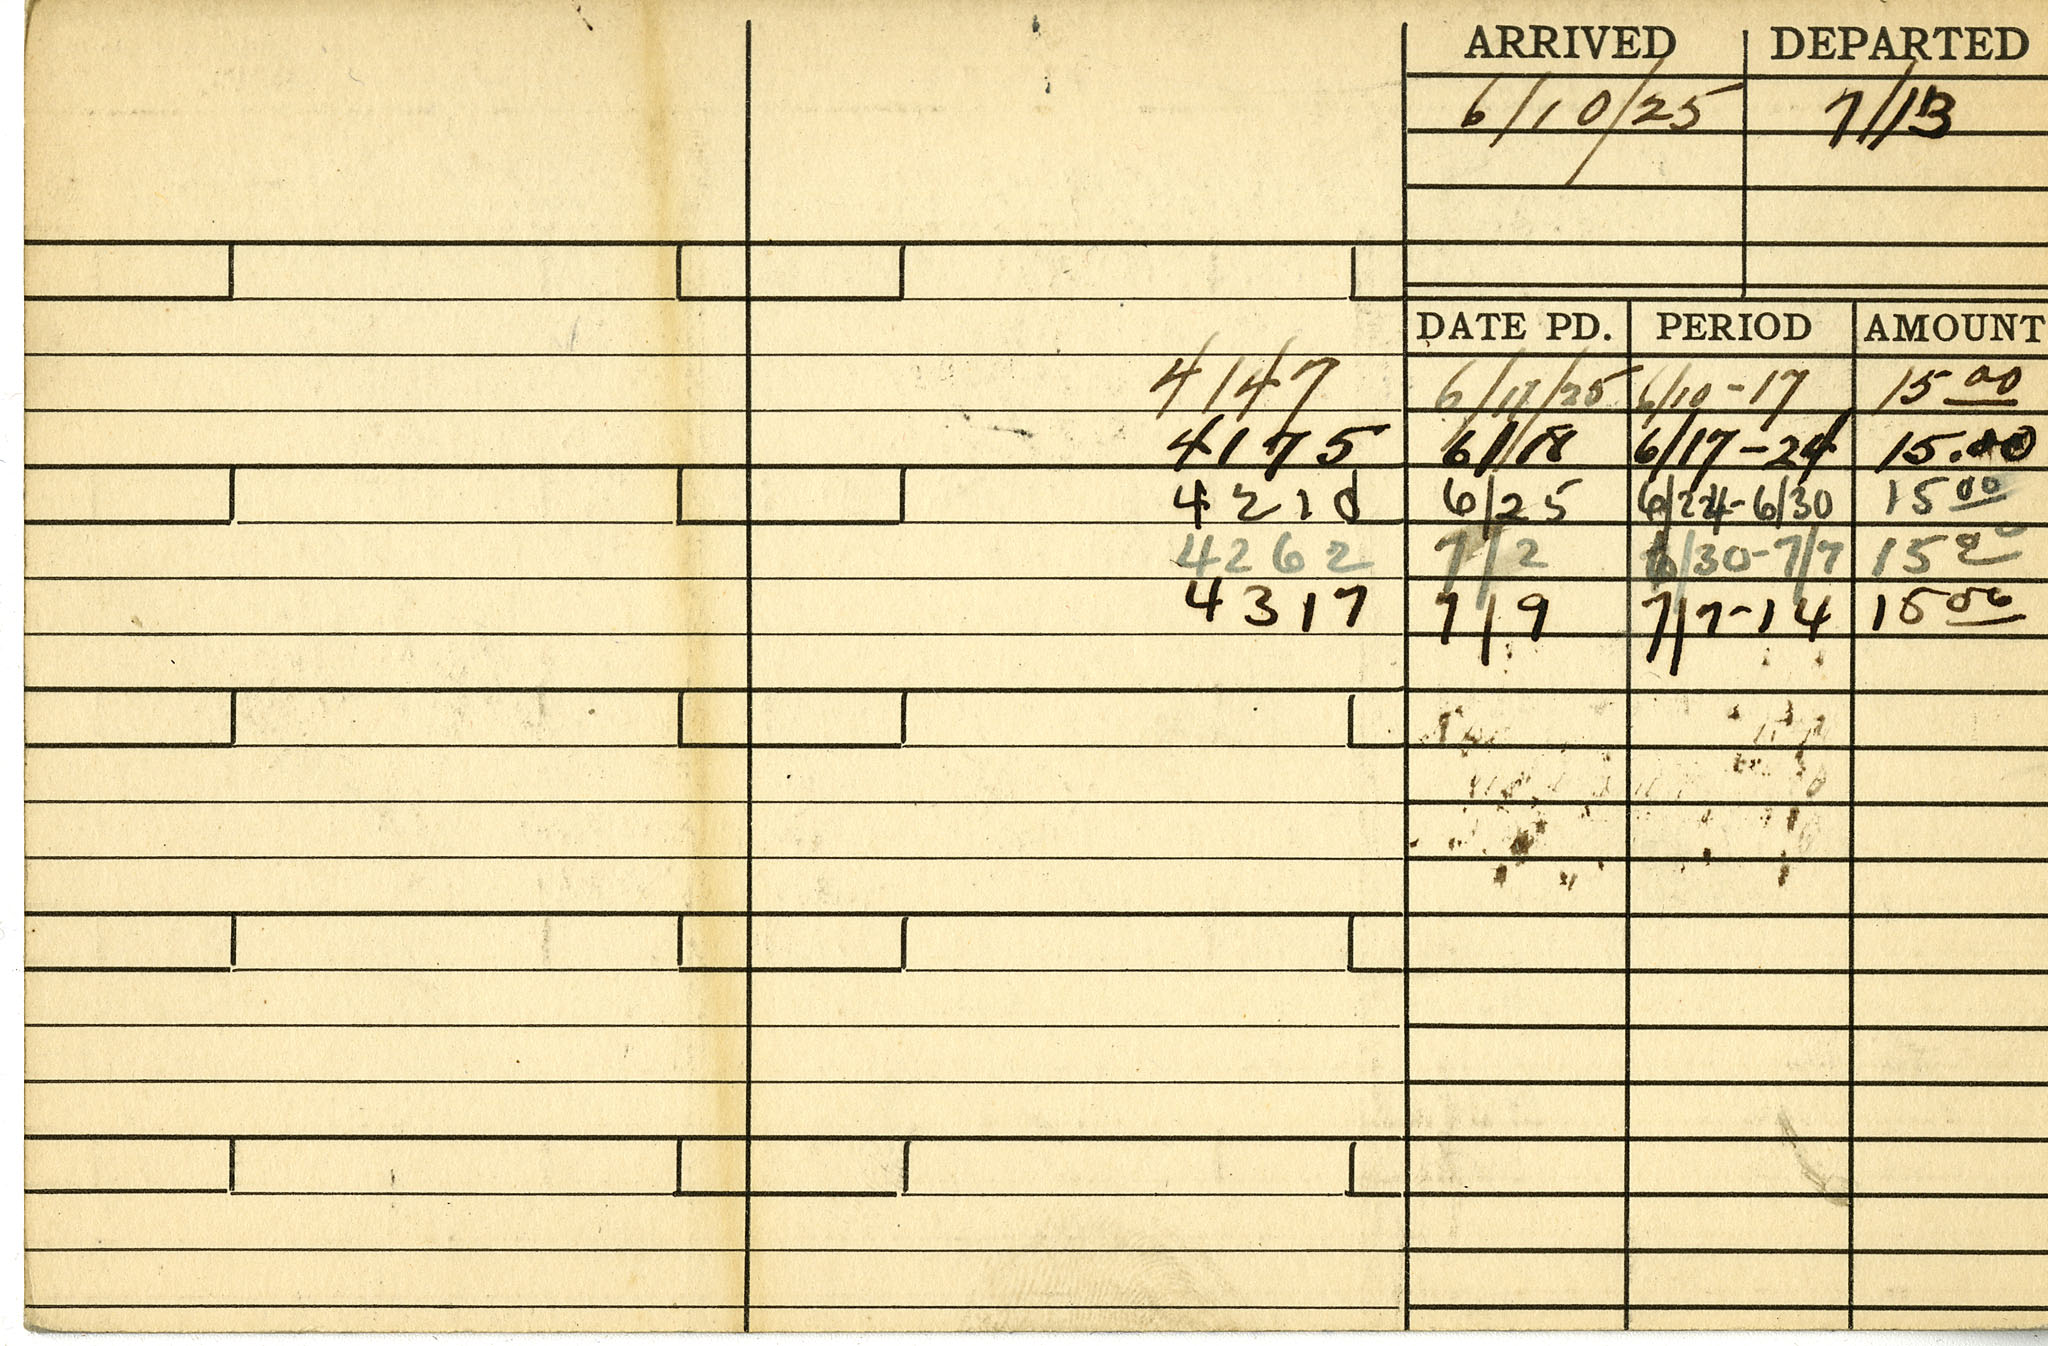 ARRIVED DEPARTED
6/10/25 7/13
DATE PD. PERIOD AMOUNT
4147 6/11/25 6/10-17 15 00
4175 6/18 6/17-24 15.00
4210 6/25 6/24-6/30 15 00
4262 7/2 6/30-7/7 15 00
4317 7/9 7/7-14 15 00